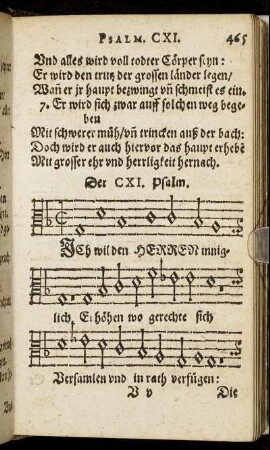 PSALM. CXI. 465
Vnd alles wird voll todter Cörper seyn:
Er wird den trutz der grossen länder legen/
Wañ er jr haupt bezwingt vñ schmeist es ein.
7. Er wird sich zwar auff solchen weg bege-
ben
Mit schwerer müh/vñ trincken auß der bach:
Doch wird er auch hiervor das haupt erhebē
Mit grosser ehr vnd herrligkeit hernach.
Der CXI. Psalm.
ICh wil den HERREN innig-
lich Erhöhen wo gerechte sich
Versamlen vnd in rath verfügen:
V v Die